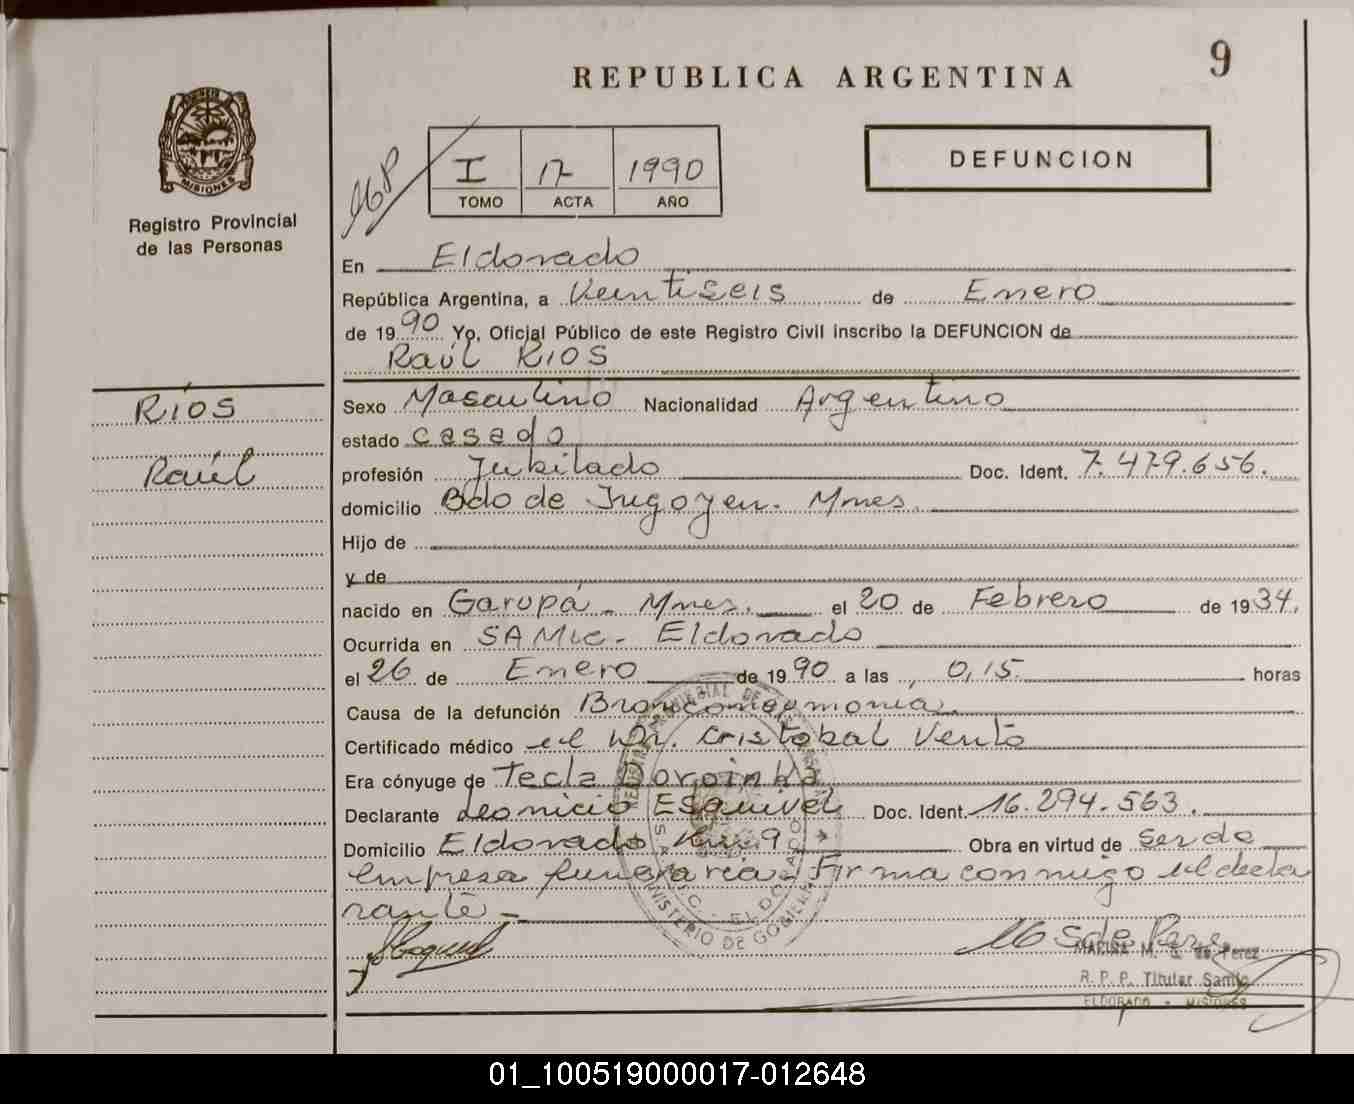 9
REPUBLICA ARGENTINA
DEFUNCION
I 17 1990
TOMO ACTA AÑO
MISIONES
Registro Provincial
de las Personas
En Eldorado
República Argentina, a Veintiseis de Enero
de 1990 Yo, Oficial Público de este Registro Civil inscribo la DEFUNCION de
Raúl RIOS
RIOS
Raúl
Sexo Masculino Nacionalidad Argentino
estado casado
profesión Jubilado Doc. Ident. 7.479.656.
domicilio Bdo de Irigoyen. Mnes.
Hijo de
y de
nacido en Garupá - Mnes. el 20 de Febrero de 1934.
Ocurrida en SAMIC - Eldorado
el 26 de Enero de 1990 a las 0,15 horas
Causa de la defunción Bronconeumonia.
Certificado médico el Dr. Cristobal Vento
Era cónyuge de Tecla
Declarante Leonicio Esquivel Doc. Ident. 16.294.563.
Domicilio Eldorado Km 9 Obra en virtud de ser de
empresa funeraria - Firma conmigo el decla
rante -
MINISTERIO DE GOBIERNO
SAMIC - ELDORADO
M S de Perez
MARINA M. S. de Perez
R. P. P. Titular Samic
ELDORADO - MISIONES
01_100519000017-012648